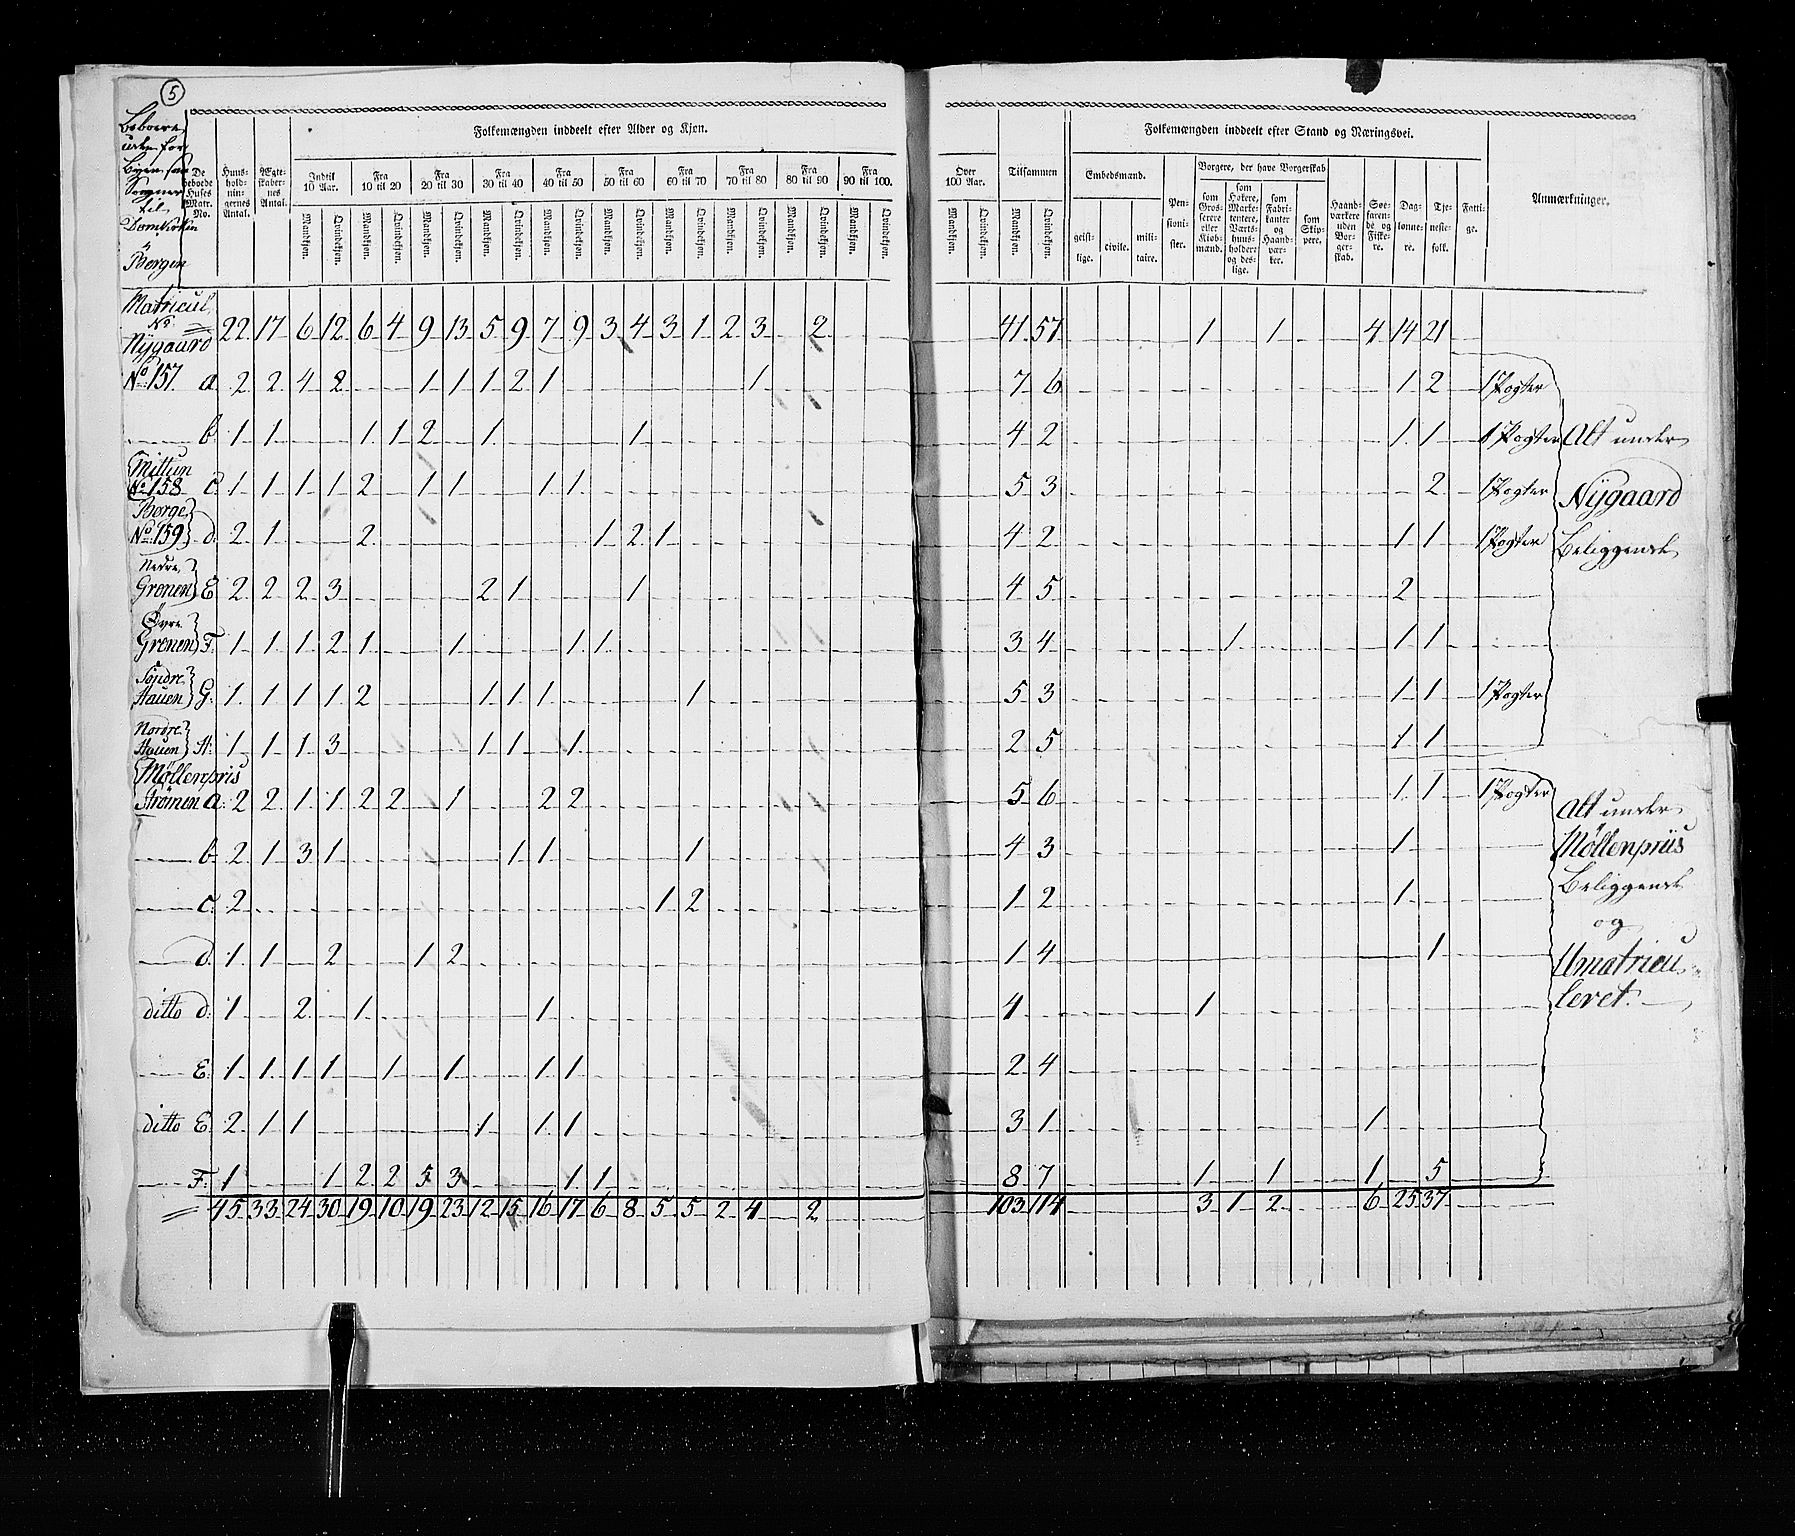 5
Beboere
uden for
Byen, som
Sogner
til
Domkirken
i
Bergen
De
beboede
Huses
Matr.
No.
Huus-
hold-
nin-
gernes
Antal.
Ægte-
skaber-
nes
Antal.
Folkemængden inddeelt efter Alder og Kjøn.
Indtil 10 Aar.
Fra 10 til 20
Fra 20 til 30
Fra 30 til 40
Fra 40 til 50
Fra 50 til 60
Fra 60 til 70
Fra 70 til 80
Fra 80 til 90
Fra 90 til 100.
Mandkjøn. Qvindekjøn. Mandkjøn. Qvindekjøn. Mandkjøn. Qvindekjøn. Mandkjøn. Qvindekjøn. Mandkjøn. Qvindekjøn. Mandkjøn. Qvindekjøn. Mandkjøn. Qvindekjøn. Mandkjøn. Qvindekjøn. Mandkjøn. Qvindekjøn. Mandkjøn. Qvindekjøn.
Over 100 Aar.
Mandkjøn. Qvindekjøn.
Tilsammen
Mandkjøn. Qvindekjøn.
Folkemængden inddeelt efter Stand og Næringsvei.
Embedsmænd.
geist-
lige.
civile.
mili-
taire.
Pen-
sioni-
ster.
Borgere, der have Borgerskab
som
Gros-
serere
eller
Kiøb-
mænd.
som
Høkere,
Marke-
tentere,
Værts-
huus-
holdere
og des-
lige.
som
Fabri-
kanter
og
Haand-
vær-
ker.
som
Skip-
pere.
Haand-
værkere
uden
Bor-
ger-
skab.
Søe-
faren-
de og
Fiske-
re.
Dag-
lønne-
re.
Tje-
neste-
folk.
Fatti-
ge.
Anmærkninger.
Matricul
No
Nÿgaard 22 17 6 12 6 4 9 13 5 9 7 9 3 4 3 1 2 3 2 41 57 1 1 4 14 21
No 157 a 2 2 4 2 1 1 1 2 1 1 7 6 1 2 1 Pogter
b 1 1 1 1 2 1 1 4 2 1 1 1 Pogter Alt under
Mittun
No 158 c. 1 1 1 1 2 1 1 1 1 5 3 2 1 Pogter Nÿgaard
Borge
No 159 d. 2 1 2 1 2 1 4 2 1 1 1 Pogter Beliggende
Nedre
Gronen E 2 2 2 3 2 1 1 4 5 2
Øvre
Gronen F. 1 1 1 2 1 1 1 1 3 4 1 1 1
Søndre
Hauen G: 1 1 1 1 2 1 1 1 1 5 3 1 1 1 Pogter
Nordre
Hauen H: 1 1 1 3 1 1 1 2 5 1 1
Møllenpris
Strömen a: 2 2 1 1 2 2 1 2 2 5 6 1 1 1 Pogter
Alt under
b 2 1 3 1 1 1 1 4 3 1 Möllenpriis
c. 2 1 2 1 2 1 Beliggende
og
d. 1 1 2 1 2 1 4 1 Umatricu-
ditto d: 1 2 1 1 4 1 leret.
E. 1 1 1 1 1 1 1 1 2 4
ditto E. 2 1 1 1 1 1 3 1 1
F. 1 1 2 2 5 3 1 1 8 7 1 1 1 5
45 33 24 30 19 10 19 23 12 15 16 17 6 8 5 5 2 4 2 103 114 3 1 2 6 25 37